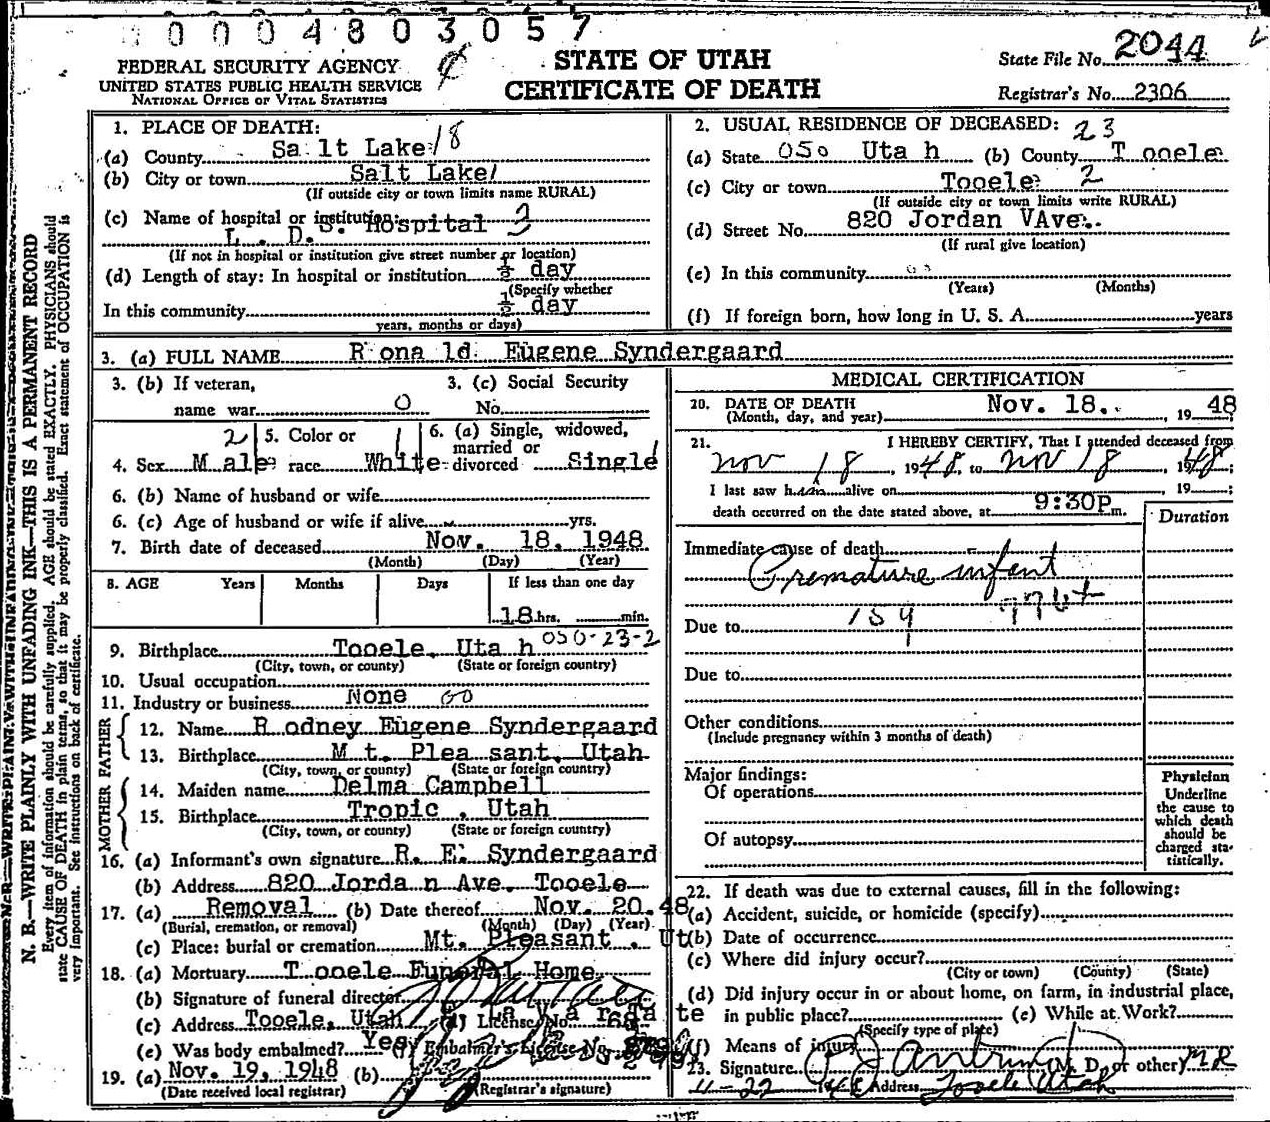 0 0 0 4 8 0 3 0 5 7
FEDERAL SECURITY AGENCY
UNITED STATES PUBLIC HEALTH SERVICE
NATIONAL OFFICE OF VITAL STATISTICS
STATE OF UTAH
CERTIFICATE OF DEATH
State File No. 2044
Registrar's No. 2306
N. B.—WRITE PLAINLY WITH UNFADING INK—THIS IS A PERMANENT RECORD
Every item of information should be carefully supplied. AGE should be stated EXACTLY. PHYSICIANS should
state CAUSE OF DEATH in plain terms, so that it may be properly classified. Exact statement of OCCUPATION is
very important. See instructions on back of certificate.
1. PLACE OF DEATH:
(a) County Salt Lake 18
(b) City or town Salt Lake
(If outside city or town limits name RURAL)
(c) Name of hospital or institution:
L. D. S. Hospital
(If not in hospital or institution give street number or location)
(d) Length of stay: In hospital or institution ½ day
(Specify whether
In this community ½ day
years, months or days)
2. USUAL RESIDENCE OF DECEASED: 23
(a) State 050 Utah (b) County Tooele
(c) City or town Tooele 2
(If outside city or town limits write RURAL)
(d) Street No. 820 Jordan VAve.
(If rural give location)
(e) In this community
(Years) (Months)
(f) If foreign born, how long in U. S. A. years
3. (a) FULL NAME Ronald Eugene Syndergaard
3. (b) If veteran,
name war 0
3. (c) Social Security
No.
4. Sex Male 2
5. Color or
race White 1
6. (a) Single, widowed,
married or
divorced Single
6. (b) Name of husband or wife
6. (c) Age of husband or wife if alive yrs.
7. Birth date of deceased Nov. 18. 1948
(Month) (Day) (Year)
8. AGE Years Months Days If less than one day
18 hrs. min.
9. Birthplace Tooele, Utah 050-23-2
(City, town, or county) (State or foreign country)
10. Usual occupation
11. Industry or business None
MOTHER FATHER
12. Name Rodney Eugene Syndergaard
13. Birthplace Mt. Pleasant, Utah
(City, town, or county) (State or foreign country)
14. Maiden name Delma Campbell
15. Birthplace Tropic, Utah
(City, town, or county) (State or foreign country)
16. (a) Informant's own signature R. E. Syndergaard
(b) Address 820 Jordan Ave. Tooele
17. (a) Removal (b) Date thereof Nov. 20. 48
(Burial, cremation, or removal) (Month) (Day) (Year)
(c) Place: burial or cremation Mt. Pleasant. Ut
18. (a) Mortuary Tooele Funeral Home
(b) Signature of funeral director
(c) Address Tooele, Utah (d) License No.
(e) Was body embalmed? Yes (f) Embalmer's License No.
19. (a) Nov. 19, 1948 (b)
(Date received local registrar) (Registrar's signature)
MEDICAL CERTIFICATION
20. DATE OF DEATH Nov. 18. , 19 48
(Month, day, and year)
21. I HEREBY CERTIFY, That I attended deceased from
Nov 18, 1948, to Nov 18, 1948;
I last saw him alive on , 19 ;
death occurred on the date stated above, at 9:30P m.
Duration
Immediate cause of death
Premature infant
Due to 159
Due to
Other conditions
(Include pregnancy within 3 months of death)
Major findings:
Of operations
Of autopsy
Physician
Underline
the cause to
which death
should be
charged sta-
tistically.
22. If death was due to external causes, fill in the following:
(a) Accident, suicide, or homicide (specify)
(b) Date of occurrence
(c) Where did injury occur?
(City or town) (County) (State)
(d) Did injury occur in or about home, on farm, in industrial place,
in public place? (e) While at Work?
(Specify type of place)
(f) Means of injury
23. Signature (M. D. or other)
11-22 Address Tooele Utah